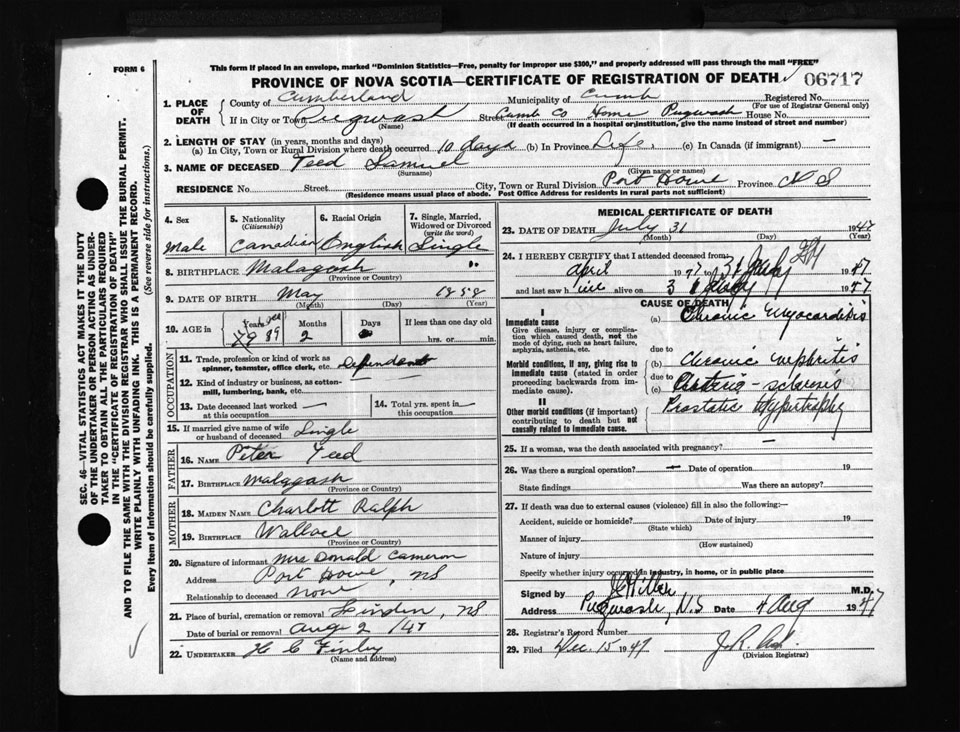 FORM 6
This form if placed in an envelope, marked "Dominion Statistics—Free, penalty for improper use $300," and properly addressed will pass through the mail "FREE"
PROVINCE OF NOVA SCOTIA—CERTIFICATE OF REGISTRATION OF DEATH 06717
1. PLACE OF DEATH
County of Cumberland Municipality of Cumb Registered No.
(For use of Registrar General only)
If in City or Town Pugwash Street Cumb Co Home Pugwash House No.
(Name) (If death occurred in a hospital or institution, give the name instead of street and number)
2. LENGTH OF STAY (in years, months and days)
(a) In City, Town or Rural Division where death occurred 10 days (b) In Province Life. (c) In Canada (if immigrant) —
3. NAME OF DECEASED Teed Samuel
(Surname) (Given name or names)
RESIDENCE No. Street City, Town or Rural Division Port Howe Province N S
(Residence means usual place of abode. Post Office Address for residents in rural parts not sufficient)
SEC. 46—VITAL STATISTICS ACT MAKES IT THE DUTY
OF THE UNDERTAKER OR PERSON ACTING AS UNDER-
TAKER TO OBTAIN ALL THE PARTICULARS REQUIRED
IN THE "CERTIFICATE OF REGISTRATION OF DEATH"
AND TO FILE THE SAME WITH THE DIVISION REGISTRAR WHO SHALL ISSUE THE BURIAL PERMIT.
WRITE PLAINLY WITH UNFADING INK. THIS IS A PERMANENT RECORD.
Every item of information should be carefully supplied. (See reverse side for instructions.)
4. Sex
Male
5. Nationality
(Citizenship)
Canadian
6. Racial Origin
English
7. Single, Married,
Widowed or Divorced
(write the word)
Single
8. BIRTHPLACE Malagash "
(Province or Country)
9. DATE OF BIRTH May 1858
(Month) (Day) (Year)
10. AGE in Years 89 Months 2 Days If less than one day old
hrs. or min.
OCCUPATION
11. Trade, profession or kind of work as
spinner, teamster, office clerk, etc. Dependent
12. Kind of industry or business, as cotton-
mill, lumbering, bank, etc.
13. Date deceased last worked
at this occupation —
14. Total yrs. spent in
this occupation —
15. If married give name of wife
or husband of deceased Single
FATHER
16. NAME Peter Teed
17. BIRTHPLACE Malagash
(Province or Country)
MOTHER
18. MAIDEN NAME Charlott Ralph
19. BIRTHPLACE Wallace
(Province or Country)
20. Signature of informant Mrs Donald Cameron
Address Port Howe, NS
Relationship to deceased none
21. Place of burial, cremation or removal Linden, NS.
Date of burial or removal Aug 2 /47
22. UNDERTAKER H C Finley
(Name and address)
MEDICAL CERTIFICATE OF DEATH
23. DATE OF DEATH July 31 1947
(Month) (Day) (Year)
24. I HEREBY CERTIFY that I attended deceased from
April 1947 to 31 July 1947
and last saw h im alive on 31 July 1947
CAUSE OF DEATH
I
Immediate cause
Give disease, injury or complica-
tion which caused death, not the
mode of dying, such as heart failure,
asphyxia, asthenia, etc.
(a) Chronic Myocarditis
due to
Morbid conditions, if any, giving rise to
immediate cause (stated in order
proceeding backwards from im-
mediate cause).
(b) Chronic nephritis
due to
(c) Arterio-sclerosis
II
Other morbid conditions (if important)
contributing to death but not
causally related to immediate cause.
Prostatic Hypertrophy
25. If a woman, was the death associated with pregnancy? —
26. Was there a surgical operation? — Date of operation 19
State findings Was there an autopsy?
27. If death was due to external causes (violence) fill in also the following:—
Accident, suicide or homicide? Date of injury 19
(State which)
Manner of injury
(How sustained)
Nature of injury
Specify whether injury occurred in industry, in home, or in public place
Signed by M.D.
Address Pugwash, N.S Date 4 Aug 1947
28. Registrar's Record Number
29. Filed Dec. 15 1947 J. R.
(Division Registrar)